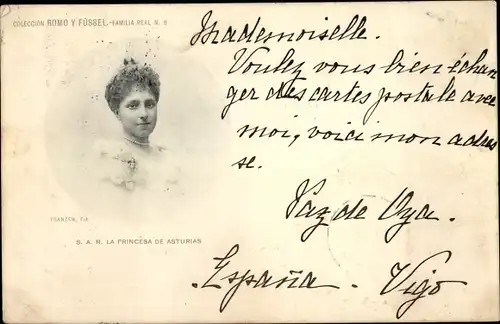 COLECCIÓN ROMO Y FÜSSEL.-FAMILIA REAL N. 6
Mademoiselle.
Voulez vous bien échan
ger des cartes postale avec
moi, voici mon adres
se.
Paz de Oya.
España. Vigo
FRANZEN, Fot.
S. A. R. LA PRINCESA DE ASTURIAS